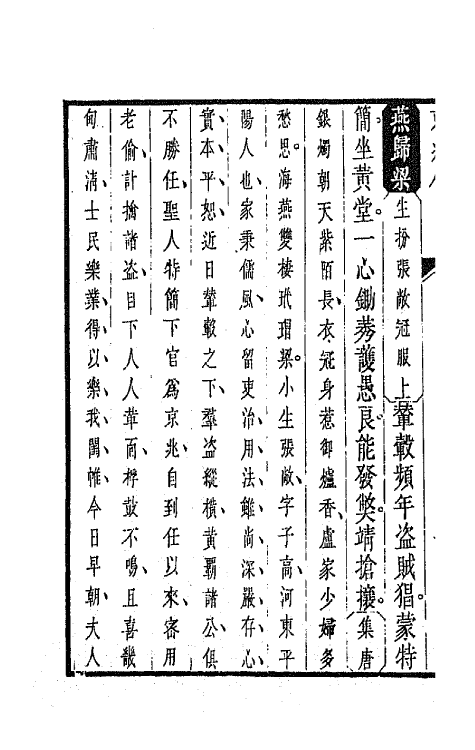 燕歸梁生扮張敞冠服上輦轂頻年盜賊猖蒙特
簡坐黃堂一心鋤莠護愚良能發奬靖搶攘集唐
銀燭朝天紫陌長衣冠身惹御爐香盧家少婦多
愁思海燕雙棲玳瑁梁小生張敞字子高河東平
陽人也家秉儒風心留吏治用法雖尚深嚴存心
實本平恕近日輦轂之下羣盜縱橫黃覇諸公俱
不勝任聖人特簡下官爲京兆自到任以來密用
老偷計擒諸盜目下人人革面桴鼓不鳴且喜畿
甸肅淸士民樂業得以樂我閨帷今日早朝夫人